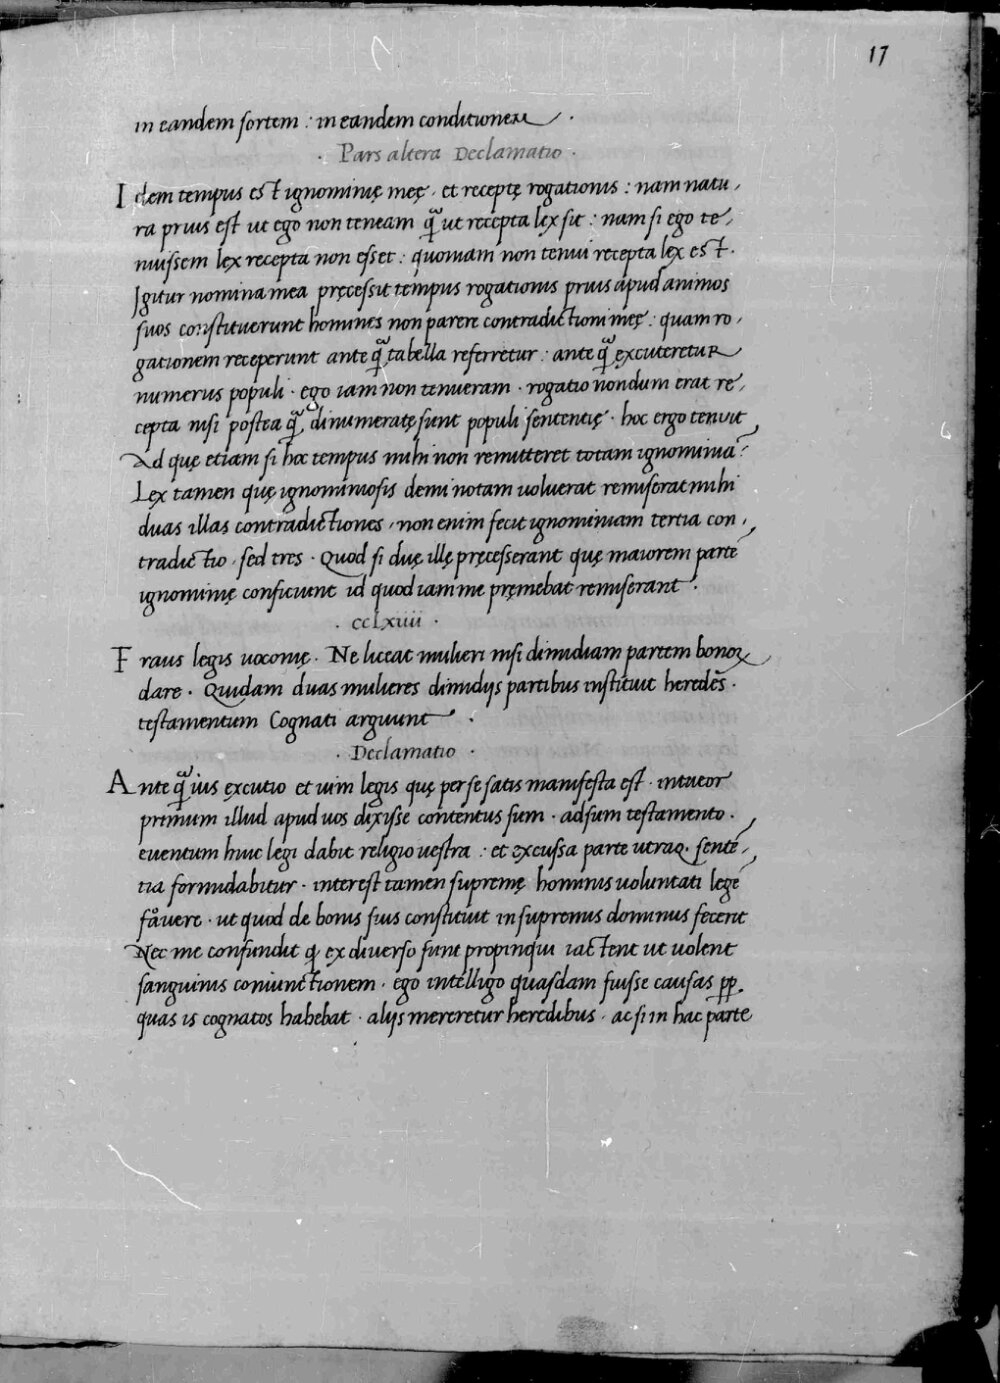 17
in eandem sortem : in eandem conditionem .
· Pars altera Declamatio ·
Idem tempus est ignominię meę , et receptę rogationis : nam natu,
ra prius est ut ego non teneam qͣ̄ ut recepta lex sit : nam si ego te,
nuissem lex recepta non esset : quoniam non tenui recepta lex est .
Igitur nomina mea pręcessit tempus rogationis prius apud animos
suos constituerunt homines non parere contradictioni meę : quam ro,
gationem receperunt ante qͣ̄ tabella referretur : ante qͣ̄ excuteretur
numerus populi · ego iam non tenueram · rogatio nondum erat re,
cepta nisi postea qͣ̄ dinumeratę sunt populi sententię · hoc ergo tenuit
Ad quę etiam si hoc tempus mihi non remitteret totam ignominiā :
Lex tamen quę ignominiosis demi notam uoluerat remiserat mihi
duas illas contradictiones , non enim fecit ignominiam tertia con,
tradictio , sed tres · Quod si duę illę pręcesserant quę maiorem partē
ignominię conficiunt id quod iam me pręmebat remiserant ·
· cclxiiii ·
Fraus legis uoconię · Ne liceat mulieri nisi dimidiam partem bonoꝝ
dare · Quidam duas mulieres dimidijs partibus instituit heredēs ·
testamentum Cognati arguunt ·
· Declamatio ·
Ante qͣ̄ ius excutio et uim legis quę per se satis manifesta est · intueor
primum illud apud uos dixisse contentus sum · adsum testamento ·
euentum huic legi dabit religio uestra : et excussa parte utraq. sentē,
tia formidabitur · interest tamen supremę hominis uoluntati legē
fåuere · ut quod de bonis suis constituit in supremis dominus fecerit
Nec me confundit q̄ ex diuerso sunt propinqui iactent ut uolent
sanguinis coniunctionem · ego intelligo quasdam fuisse causas ꝓꝑ.
quas is cognatos habebat · alijs mereretur heredibus · ac si in hac parte